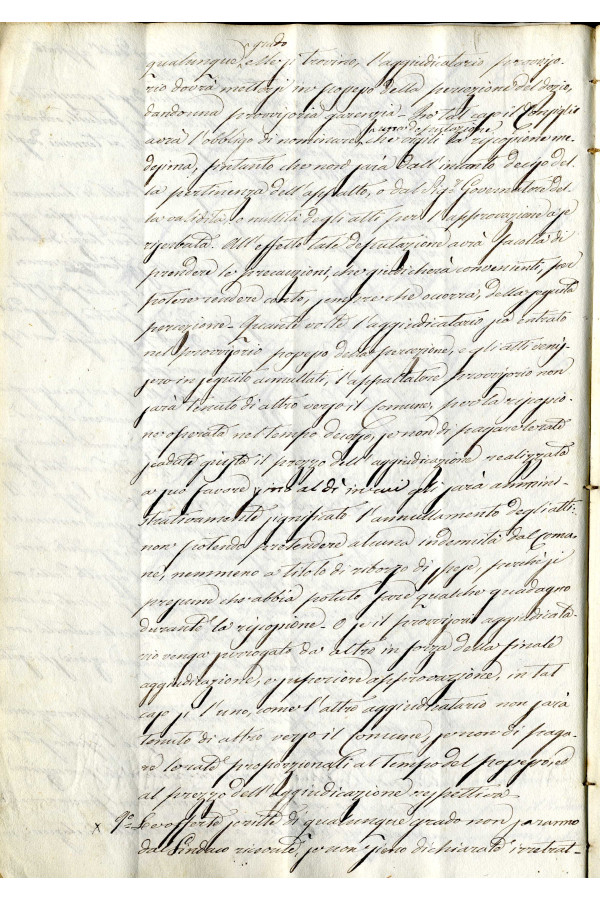 grado
qualunque, essi si trovino, l'aggiudicatario provviso-
rio dovrà mettersi in possesso della percezione del dazio,
dandone provvisoria garenzia. In tal caso il Consiglio
avrà l'obbligo di nominare
una deputazione
che vigili la riscossione me-
desima, fintanto che non sarà dall'incanto deciso del-
la pertinenza dell'appalto, o dal Governatore del-
la validità, o nullità degli atti per l'approvazione a se
riserbata. All'effetto tale deputazione avrà facoltà di
prendere le precauzioni, che giudicherà convenienti, per
potere rendere conto, sempre che occorra, della seguita
percezione. Quante volte l'aggiudicatario sia entrato
nel provvisorio possesso della percezione, e gli atti venis-
sero in seguito annullati, l'appaltatore provvisorio non
sarà tenuto di altro verso il Comune, per la riscossio-
ne operata nel tempo decorso, se non di pagare le rate
scadute giusta il prezzo dell'aggiudicazione realizzata
a suo favore sino al dì in cui gli sarà ammini-
strativamente significato l'annullamento degli atti:
non potendo pretendere alcuna indennità dal Comu-
ne, nemmeno a titolo di riborzo di spese, perchè si
presume che abbia potuto fare qualche guadagno
durante la riscossione. O se il provvisorio aggiudicata-
rio venga surrogato da altro in forza della finale
aggiudicazione, e superiore approvazione, in tal
caso sì l'uno, come l'altro aggiudicatario non sarà
tenuto di altro verso il Comune, se non di paga-
re le rate proporzionali al tempo del possesso, ed
al prezzo dell'aggiudicazione rispettiva.
x 9.° Le offerte scritte di qualunque grado non saranno
dal Sindaco ricevute, se non siano dichiarate irretrat-